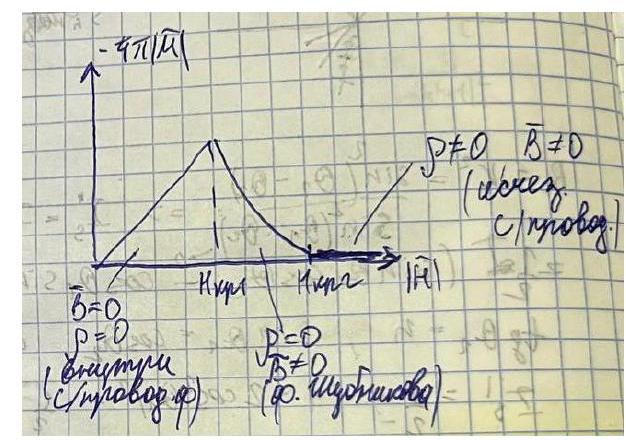 -4π|M̄|
ρ≠0 B̄≠0
(исчез.
с/провод.)
Hкр1 Hкр2 |H̄|
B̄=0
ρ=0
(внутри
с/провод.ф)
ρ=0
B̄≠0
(ф. Шубникова)